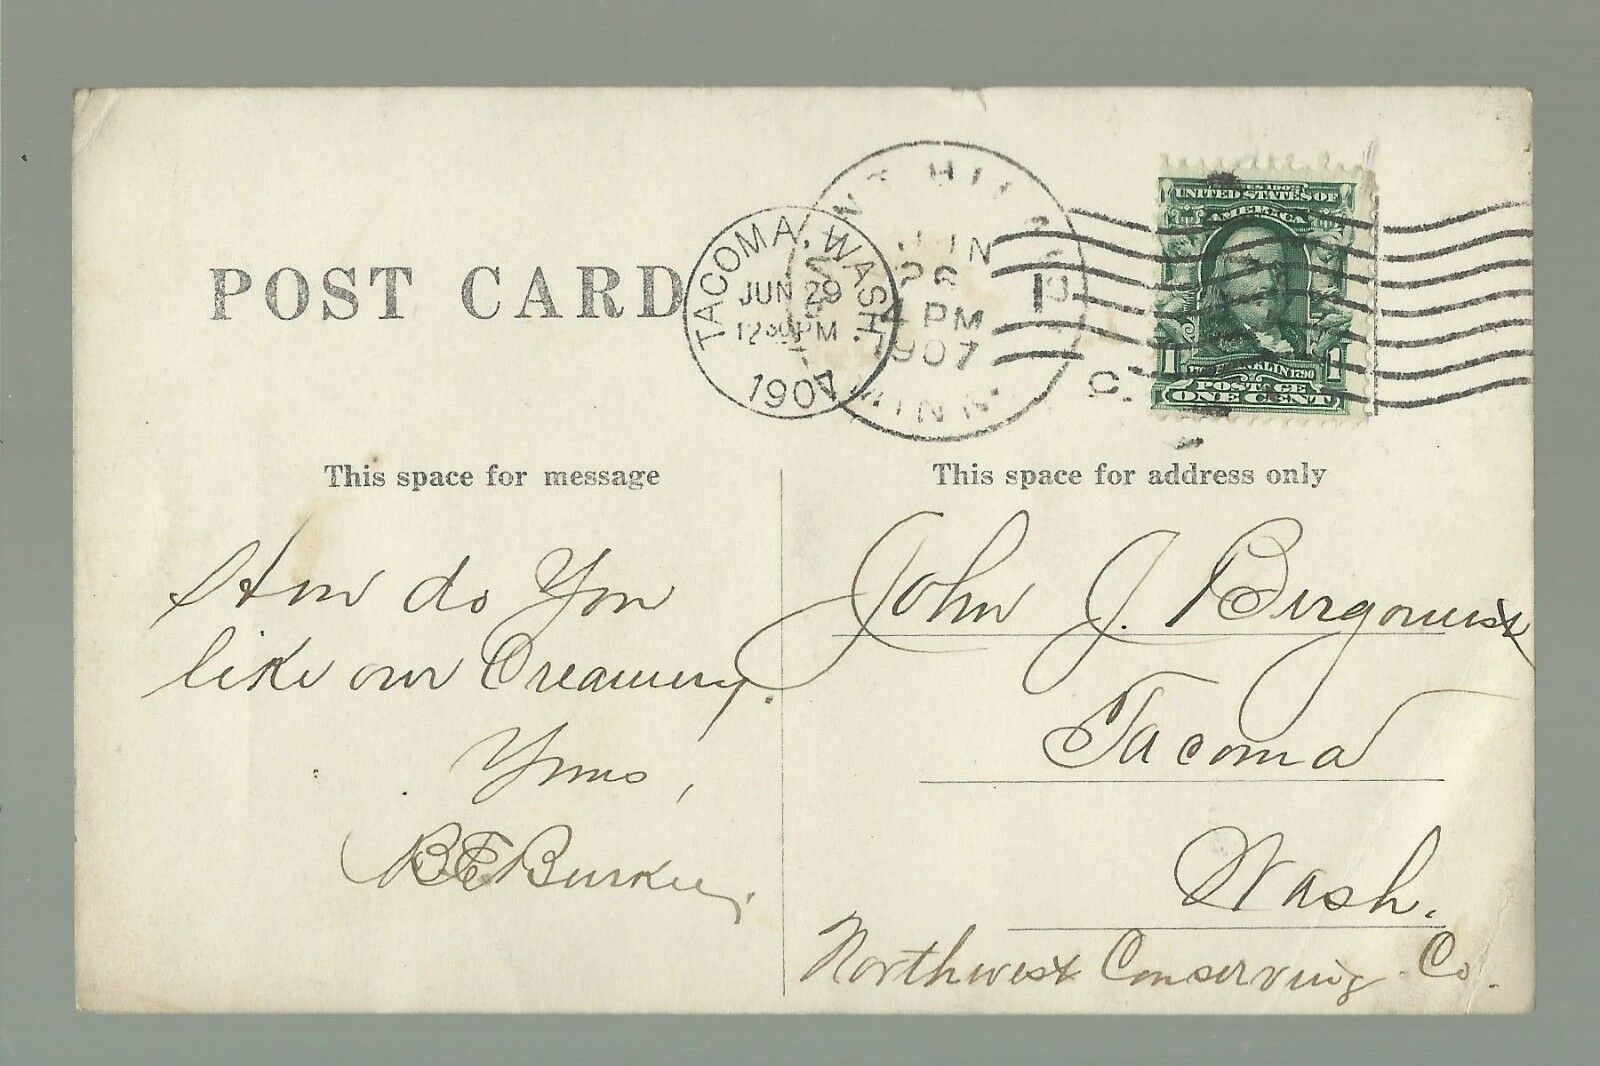 POST CARD
TACOMA, WASH.
JUN 29
1230PM
1907
JUN
26
4 PM
1907
MINN.
1
C.
SERIES 1902
UNITED STATES OF
AMERICA
1 1
FRANKLIN 1790
POSTAGE
ONE CENT
This space for message
How do You
like our Creamery.
Yours,
B E Burke
This space for address only
John J.
Tacoma
Wash.
Northwest Conserving Co.